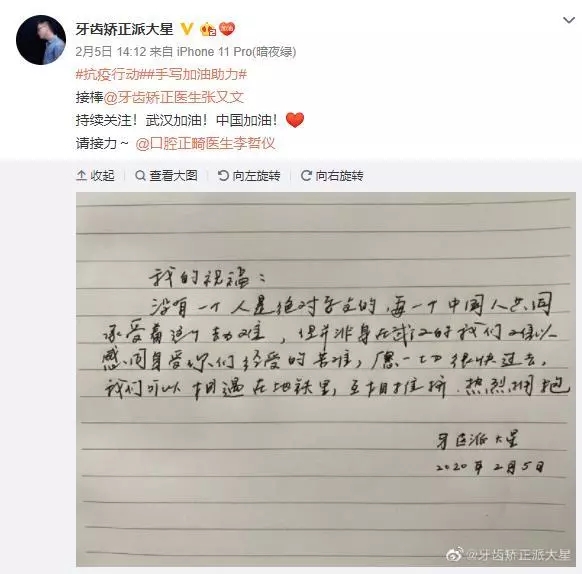 牙齿矫正派大星
2月5日 14:12 来自 iPhone 11 Pro(暗夜绿)
#抗疫行动##手写加油助力#
接棒@牙齿矫正医生张又文
持续关注！武汉加油！中国加油！
请接力～ @口腔正畸医生李晢仪
收起 查看大图 向左旋转 向右旋转
我的祝福：
没有一个人是绝对孤立的，每一个中国人共同
承受着这个劫难，但并非身在武汉的我们难以
感同身受你们经受的苦难，愿一切很快过去，
我们可以相遇在地铁里，互相推挤，热烈拥抱
牙医派大星
2020年2月5日
@牙齿矫正派大星